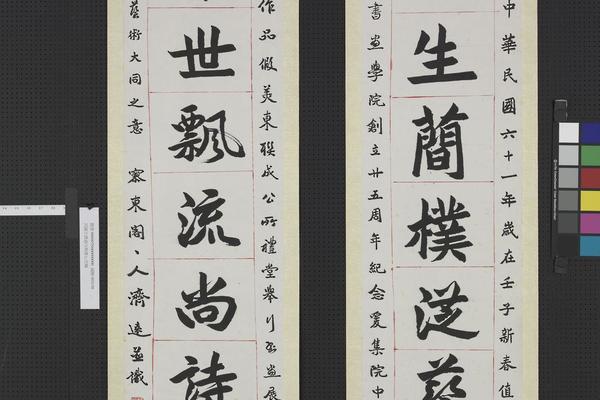 中華民國六十一年歲在壬子新春值
生蘭樸從藝
書畫學院創立廿五周年紀念爰集院中
作品假美東聯成公所禮堂舉行書畫展
世飄流尚詩
藝術大同之意 寮東閣丶人濟遠並識